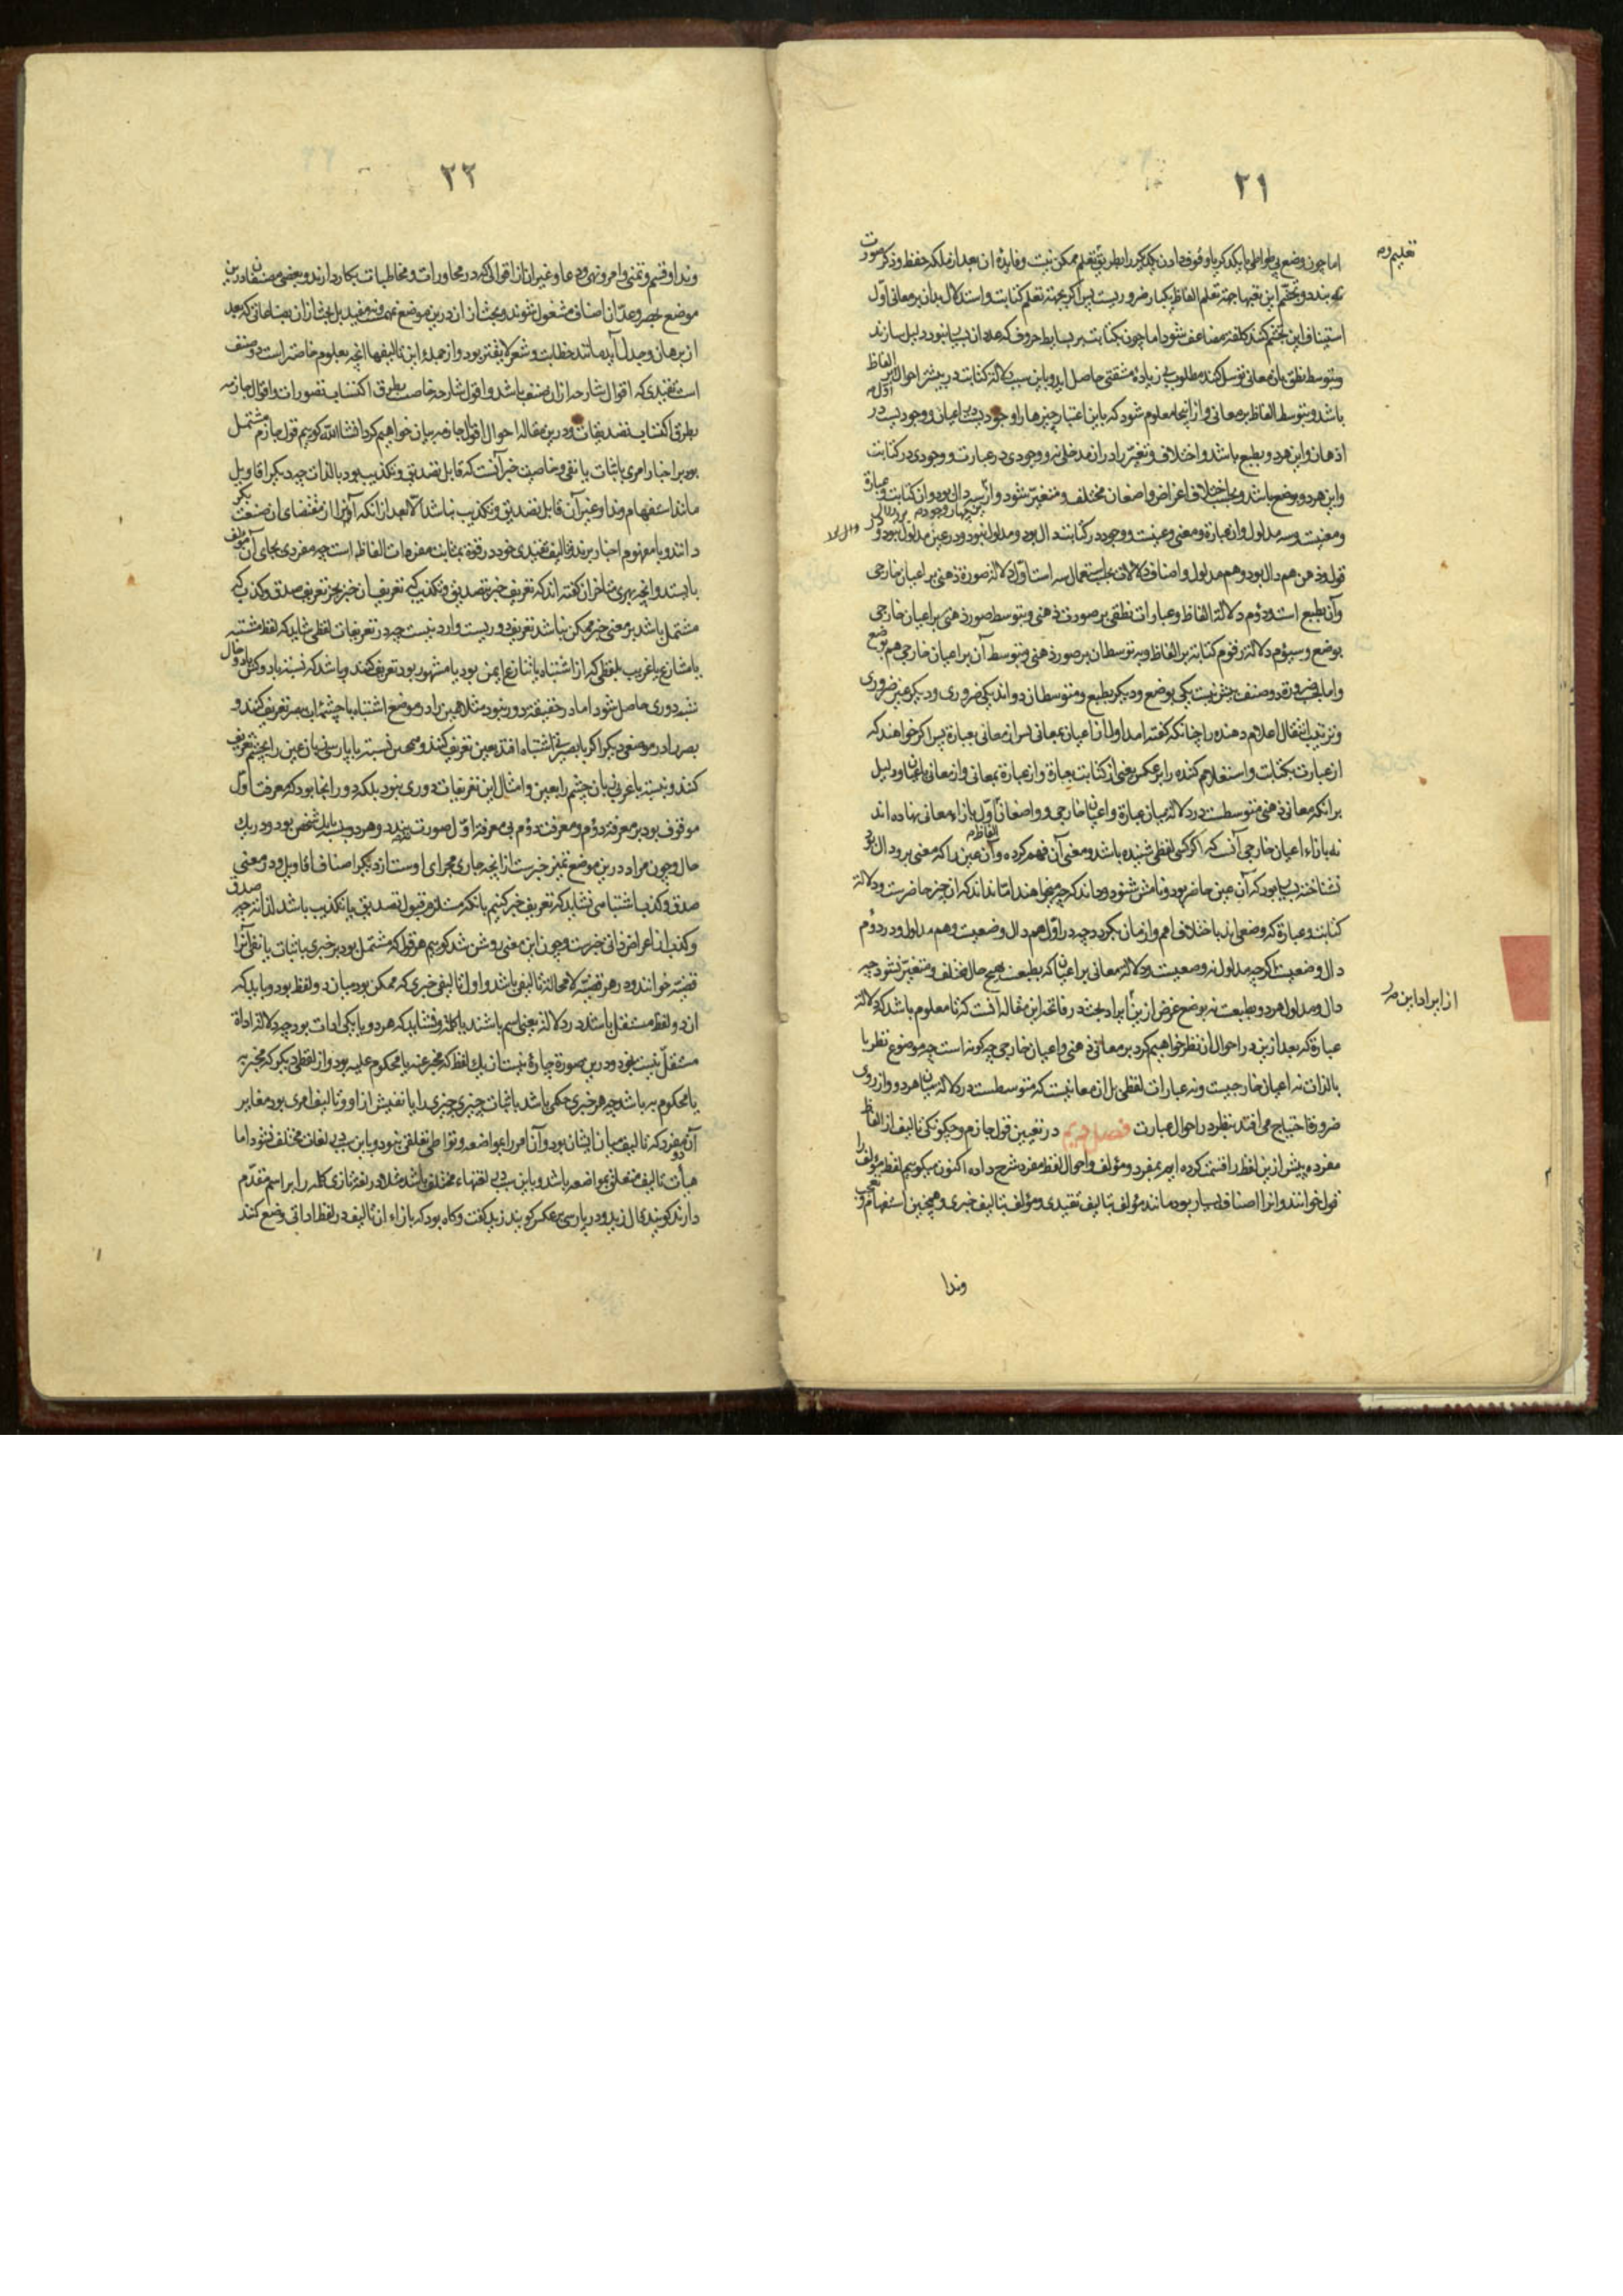 ۲۱
تعلیم و
اما چون وضع بی تواطی با یکدیگر یا وقوف دادن یکدیگر را بطریق تعلم ممکن نیست و فایدهٔ آن بعد از ملکه حفظ و ذکر صورت
نه بندد و تجشم این تعبها جهة تعلم الفاظ یکبار ضروریست پس اگر بجهة تعلم کتابت و استدلال بدان بر معانی اول
استیناف این تجشم کنند کلفت مضاعف شود اما چون بکتابت بر بسایط حروف که عدد آن بسیار نبود دلیل سازند
و بتوسط نطق بان معانی توسل کنند مطلوب بی زیادة مشقتی حاصل اید و باین سبب دلالة کتابت در بیشتر احوال بر الفاظ
باشد و بتوسط الفاظ بر معانی و از اینجا معلوم شود که باین اعتبار چیزها را وجودیست در اعیان و وجودیست در
اذهان و این هر دو بطبع باشد و اختلاف و تغیر را در ان مدخلی نه و وجودی در عبارت و وجودی در کتابت
و این هر دو بوضع باشد و بحسب اختلاف اغراض واضعان مختلف و متغیر شود و از سه دال بود و ان کتابت و عبارة
و معنیست و سه مدلول و ان عبارة و معنی و عینست و وجود در کتابت دال بود و مدلول نبود و در عین مدلول بود و
قول و ذهن هم دال بود و هم مدلول و اصناف دلالات بحسب استعمال سه است اول دلالة صورة ذهنی بر اعیان خارجی
و آن بطبع است و دوم دلالة الفاظ و عبارات نطقی بر صورت ذهنی و بتوسط صور ذهنی بر اعیان خارجی
بوضع و سیوم دلالة رقوم کتابة بر الفاظ و به توسط ان بر صور ذهنی و بتوسط آن بر اعیان خارجی هم بوضع
و اما بحسب ضرورة دو صنف بیش نیست یکی بوضع و دیگر بطبع و متوسطان دواند یکی ضروری و دیگر غیر ضروری
و ترتیب انتقال اعلام دهنده را چنانکه گفته امد اولا از اعیان بمعانی پس از معانی بعبارة پس اگر خواهند که
از عبارت بکتابت و استعلام کننده را بر عکس یعنی از کتابت بعبارة و از عبارة بمعانی و از معانی باعیان و دلیل
برانکه معانی ذهنی متوسطست در دلالة میان عبارة و اعیان خارجی و واضعان اول بازاء معانی نهاده اند
نه بازاء اعیان خارجی آنست که اگر کسی لفظی شنیده باشد و معنی آن فهم کرده و آن عین را که معنی برو دال بود
نشناخته بسیار بود که آن عین حاضر بود و نامش شنود و داند که چه میخواهند اما نداند که ان چیز حاضرست و دلالة
کتابت و عبارة که وضعی اند باختلاف امم و ازمان بگردد چه در اول هم دال وضعیست و هم مدلول و در دوم
دال وضعیست اگرچه مدلول نه وضعیست و دلالة معانی بر اعیان که بطبعست بهیچ حال مختلف و متغیر نشود چه
دال و مدلول هر دو بطبعست نه بوضع غرض ازین ایراد بحث در فاتحه این مقاله انست که تا معلوم باشد که دلالة
از ایراد این
عبارة که بعد ازین در احوال ان نظر خواهیم کرد بر معانی ذهنی و اعیان خارجی چگونه است چه موضوع نظر ما
بالذات نه اعیان خارجیست و نه عبارات لفظی بل ان معانیست که متوسطست در دلالة میان هر دو و از روی
ضرورة احتیاج می افتد بنظر در احوال عبارت فصل دویم در تعیین قول جازم و چگونگی تالیف از الفاظ
مفرده پیش ازین لفظ را قسمت کرده ایم بمفرد و مؤلف و احوال لفظ مفرد شرح داده اکنون میگوییم لفظ مؤلف را
قول خوانند و انرا اصناف بسیار بود مانند مؤلف بتالیف تقییدی و مؤلف بتالیف خبری و همچنین استفهام و تعجب
وندا
۲۲
وندا و قسم و تمنی و امر و نهی و دعا و غیر ان از اقوالی که در محاورات و مخاطبات بکار دارند و بعضی مصنفان درین
موضع بحصر و عد آن اصناف مشغول شوند و بحث از ان درین موضع نه مهمست و نه مفید بل بحث از ان بصناعاتی که بعد
از برهان و جدل آید مانند خطابت و شعر لایق تر بود و از جملهٔ این تالیفها انچه بعلوم خاصتر است دو صنف
است تقییدی که اقوال شارحه ازان صنف باشد و اقوال شارحه خاصست بطریق اکتساب تصورات و اقوال جازمه
بطریق اکتساب تصدیقات و درین مقاله احوال اقوال جازمه بیان خواهیم کرد انشاالله گوییم قول جازم مشتمل
بود بر اخبار امری باثبات یا نفی و خاصیت خبر آنست که قابل تصدیق و تکذیب بود بالذات چه دیگر اقاویل
مانند استفهام و ندا و غیر آن قابل تصدیق و تکذیب نباشد الا بعد ازانکه آنرا از مقتضای ان صنعت
دانند و با مفهوم اخبار برند و تالیف تقییدی خود در قوة بمثابت مفردات الفاظ است چه مفردی بجای آن مؤلف
بایستد و انچه بهری متاخران گفته اند که تعریف خبر بتصدیق و تکذیب که تعریف ان خبر بجز تعریف صدق و کذب که
مشتمل باشد بر معنی خبر ممکن نباشد تعریف دوریست وارد نیست چه در تعریفات لفظی شاید که لفظ مشتبه
یا متنازع یا غریب بلفظی که از اشتباه یا تنازع ایمن بود یا مشهور بود تعریف کنند و باشد که نسبت با دو کس یا دو حال
شبه دوری حاصل شود اما در حقیقت دور نبود مثلا عین را در موضع اشتباه با چشمهٔ اب ببصر تعریف کنند و
بصر را در موضعی دیگر اگر با بصیرة اشتباه افتد بعین تعریف کنند و همچنین نسبت با پارسی زبان عین را بچشم تعریف
کنند و نسبت با عربی زبان چشم را بعین و امثال این تعریفات دوری نبود بلکه دور انجا بود که معرفت اول
موقوف بود بر معرفة دوم و معرفت دوم بی معرفة اول صورت نبندد و هر دو نسبت با یک شخص بود و در یک
حال و چون مراد درین موضع تمیز خبرست از انچه جاری مجرای اوست از دیگر اصناف اقاویل و در معنی
صدق و کذب اشتباهی نه شاید که تعریف خبر کنیم بانکه مستلزم قبول تصدیق یا تکذیب باشد لذاته چه صدق
و کذب از اعراض ذاتی خبرست و چون این معنی روشن شد گوییم هر قول که مشتمل بود بر خبری باثبات یا نفی آنرا
قضیه خوانند و در هر قضیه لا محاله تالیفی باشد و اول تالیفی خبری که ممکن بود میان دو لفظ بود و باید که
ان دو لفظ مستقل باشند در دلالة یعنی اسم باشند یا کلمه و نشاید که هر دو یا یکی ادات بود چه دلالة اداة
مستقل نیست بخود و درین صورة چاره نیست از یک لفظ که مخبر عنه یا محکوم علیه بود و از لفظی دیگر که مخبر به
یا محکوم به باشد چه هر خبری حکمی باشد باثبات چیزی چیزی را یا نفیش از او و تالیف امری بود مغایر
آن دو مفرد که تالیف میان ایشان بود و آن امر را بمواضعه و تواطی تعلقی نبود و باین سبب در لغات مختلف نشود اما
هیأت تالیف متعلق بمواضعه باشد و باین سبب بلغتهاء مختلف باشد مثلا در لغة تازی کلمه را بر اسم مقدم
دارند گویند قال زید و در پارسی بر عکس گویند زید گفت و گاه بود که بازاء ان تالیف در لفظ اداتی وضع کنند